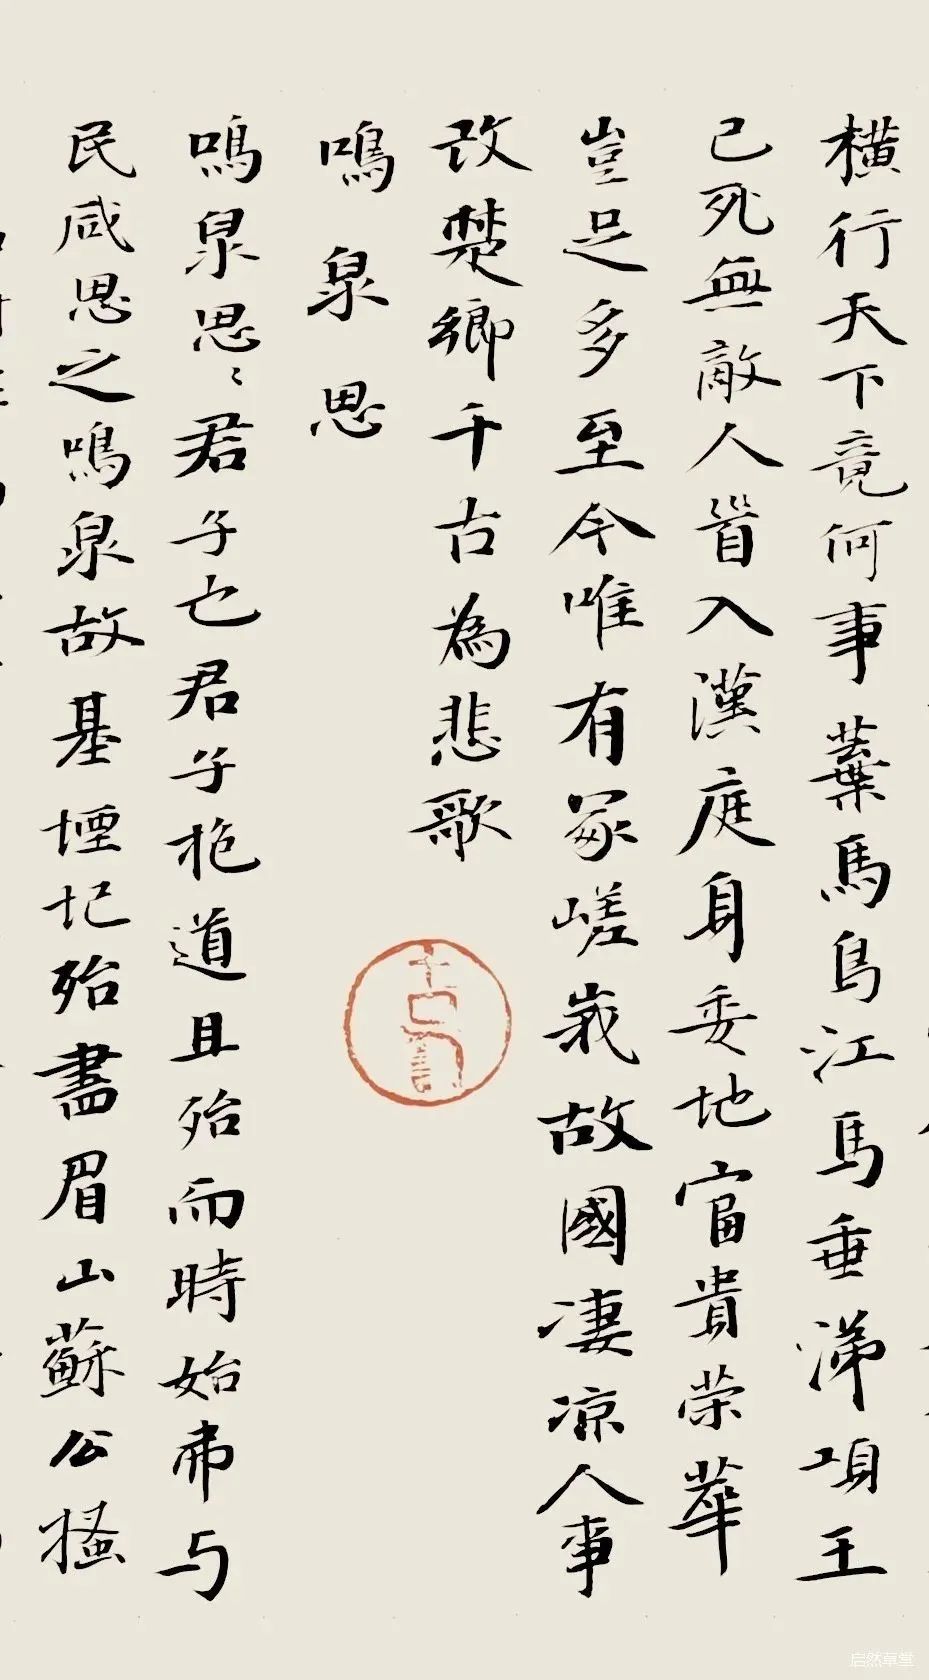 橫行天下竟何事棄馬烏江馬垂涕項王
已死無敵人首入漢庭身委地富貴榮華
豈足多至今唯有冢嵯峨故國凄凉人事
改楚鄉千古為悲歌
鳴泉思
鳴泉思〻君子也君子抱道且殆而時始弗与
民咸思之鳴泉故基堙圮殆盡眉山蘇公搔
启然草堂